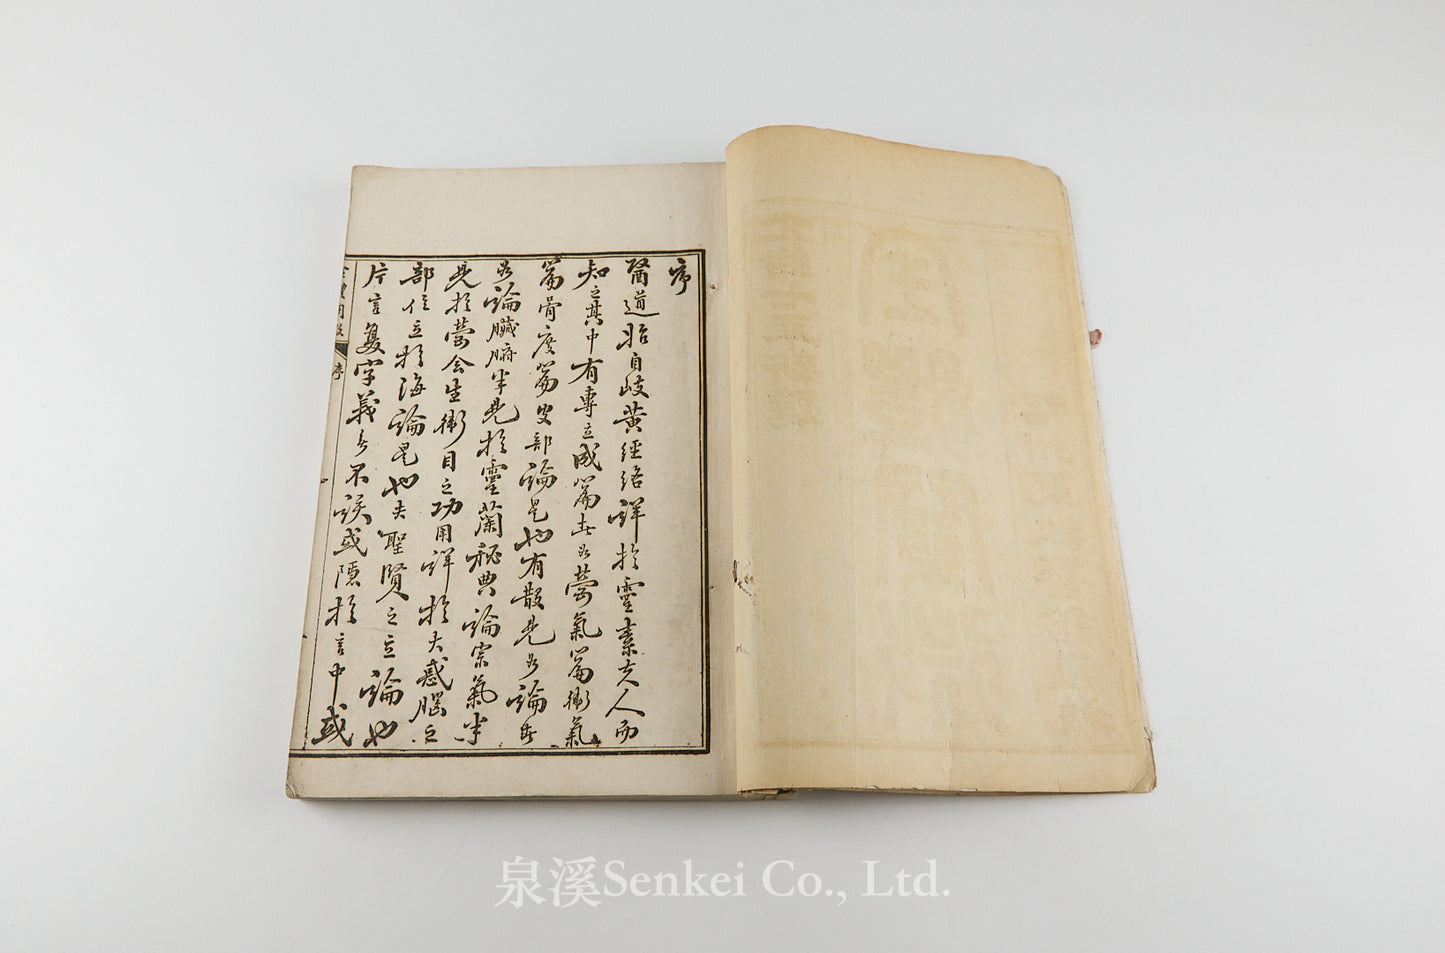 序
醫道昭自岐黃經絡詳於靈素夫人而
知之其中有專立成篇者如營氣篇衛氣
篇骨度篇皮部論是也有散見如論
如論臟腑半見於靈蘭秘典論宗氣半
見於營衛生會衛目之功用詳於大惑腦之
部位立於海論是也夫聖賢之立論也
片言隻字義無不該或隱於言中或
序
泉溪Senkei Co., Ltd.